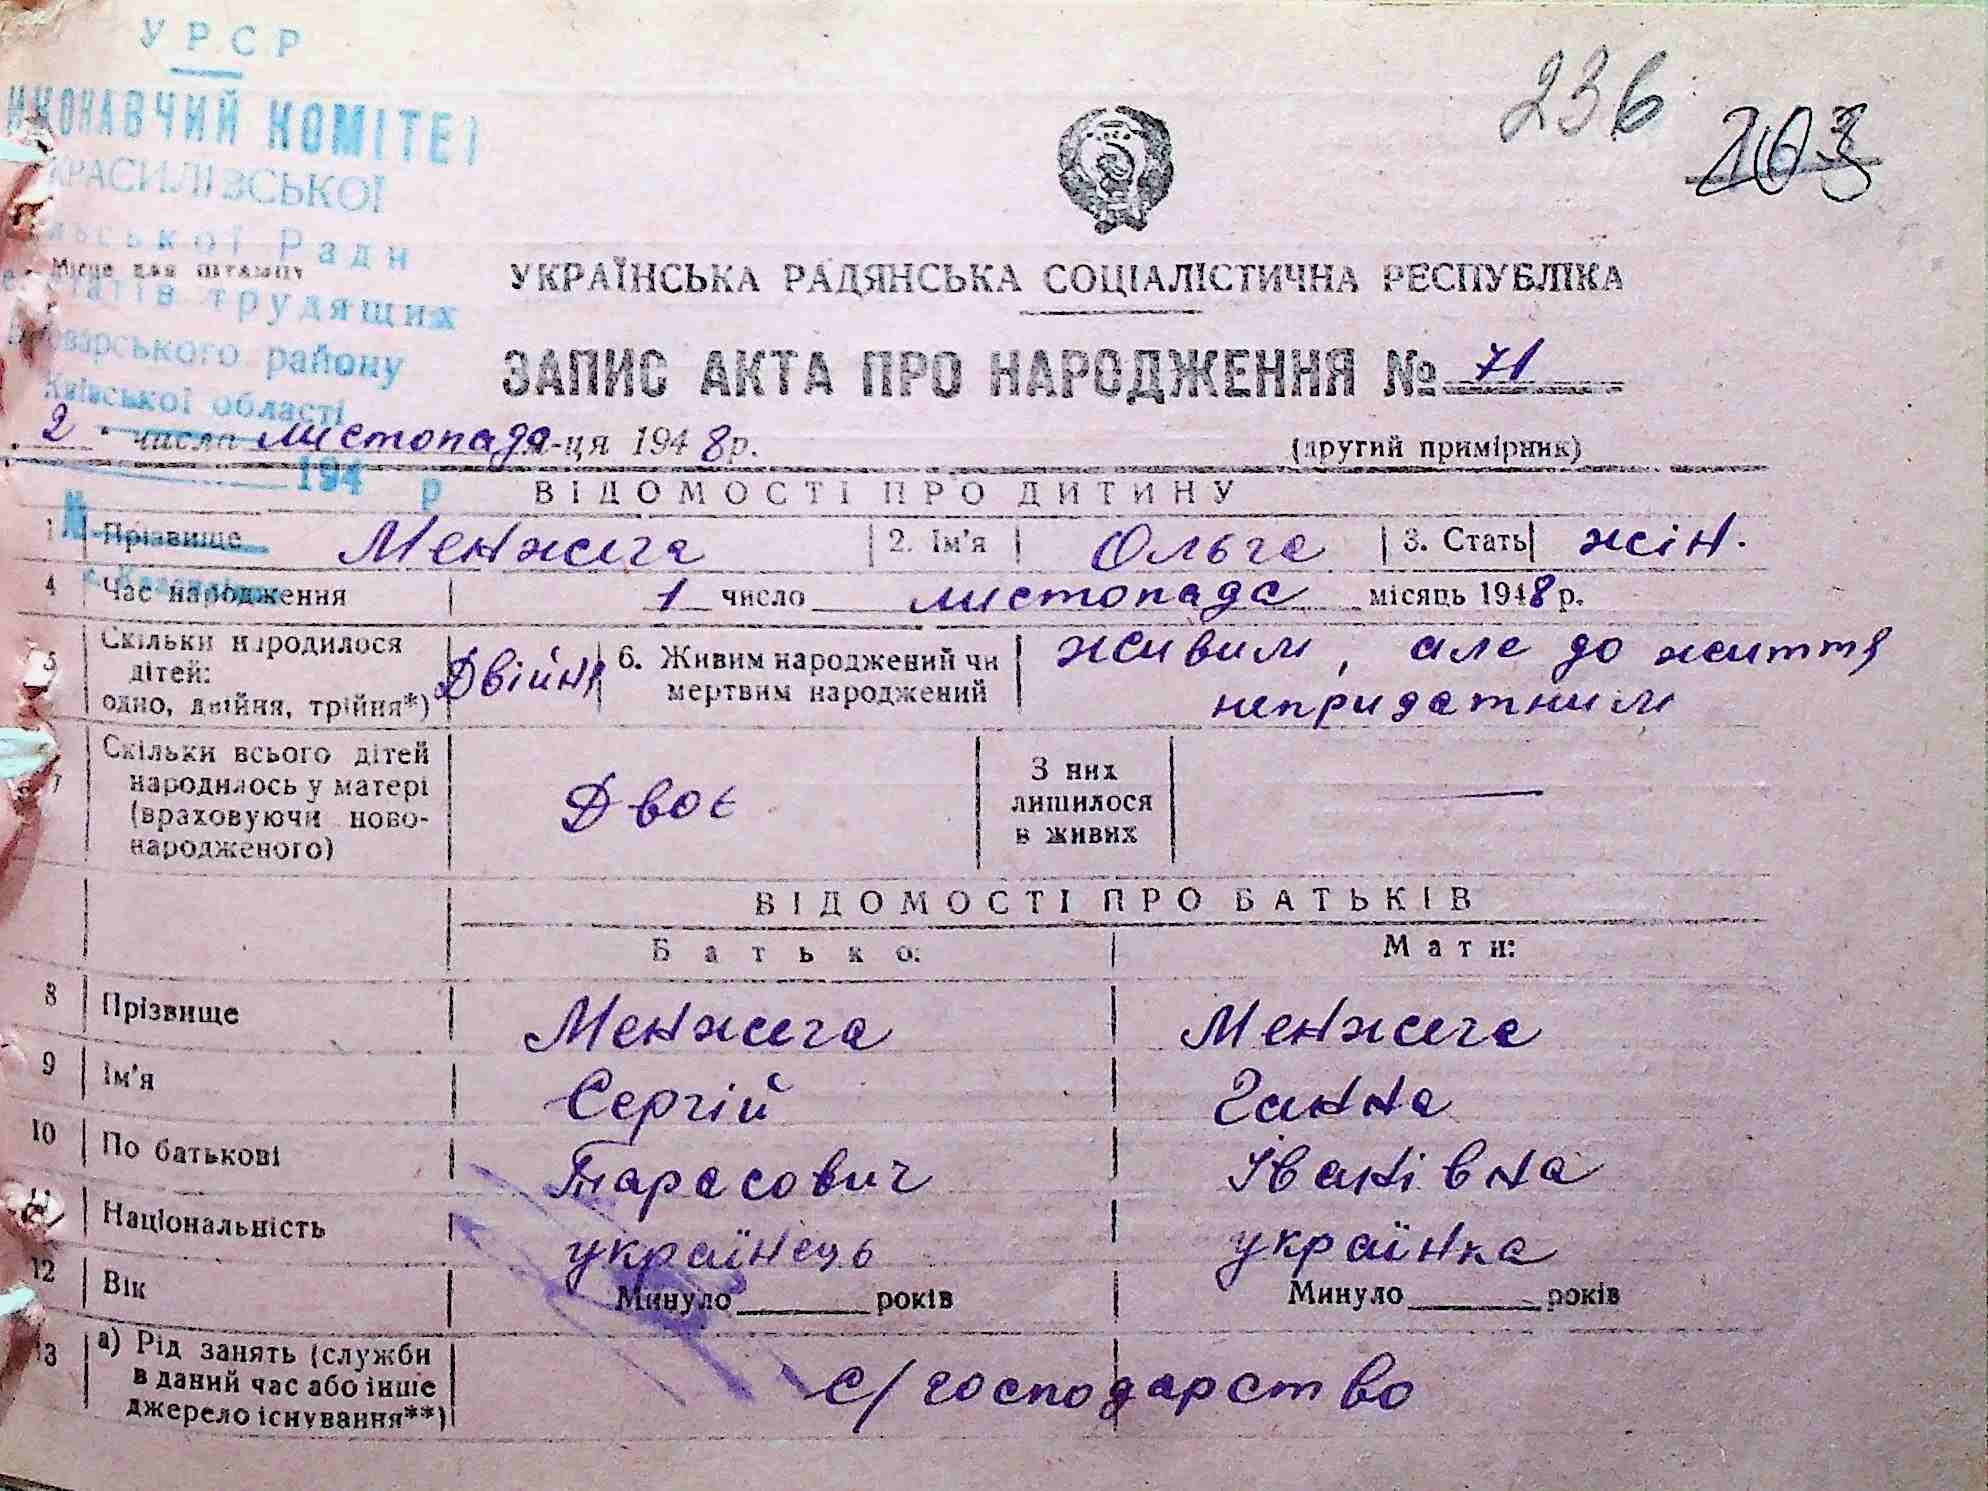 УРСР
ИКОНАВЧИЙ КОМІТЕТ
КРАСИЛІВСЬКОЇ
Ради
трудящих
Броварського району
Київської області
194 р
№
236
203
Місце для штампу
УКРАЇНСЬКА РАДЯНСЬКА СОЦІАЛІСТИЧНА РЕСПУБЛІКА
ЗАПИС АКТА ПРО НАРОДЖЕННЯ № 71
"2" числа листопада м-ця 1948 р.
(другий примірник)
ВІДОМОСТІ ПРО ДИТИНУ
1 Прізвище Менжега 2. Ім'я Ольга 3. Стать жін.
4 Час народження 1 число листопада місяць 1948 р.
5 Скільки народилося дітей: одно, двійня, трійня*) Двійня 6. Живим народжений чи мертвим народжений живим, але до життя непридатним
7 Скільки всього дітей народилось у матері (враховуючи ново-народженого) Двоє З них лишилося в живих —
ВІДОМОСТІ ПРО БАТЬКІВ
Батько: Мати:
8 Прізвище Менжега Менжега
9 Ім'я Сергій Ганна
10 По батькові Тарасович Іванівна
11 Національність українець українка
12 Вік Минуло ______ років Минуло ______ років
13 а) Рід занять (служби в даний час або інше джерело існування**) с/господарство